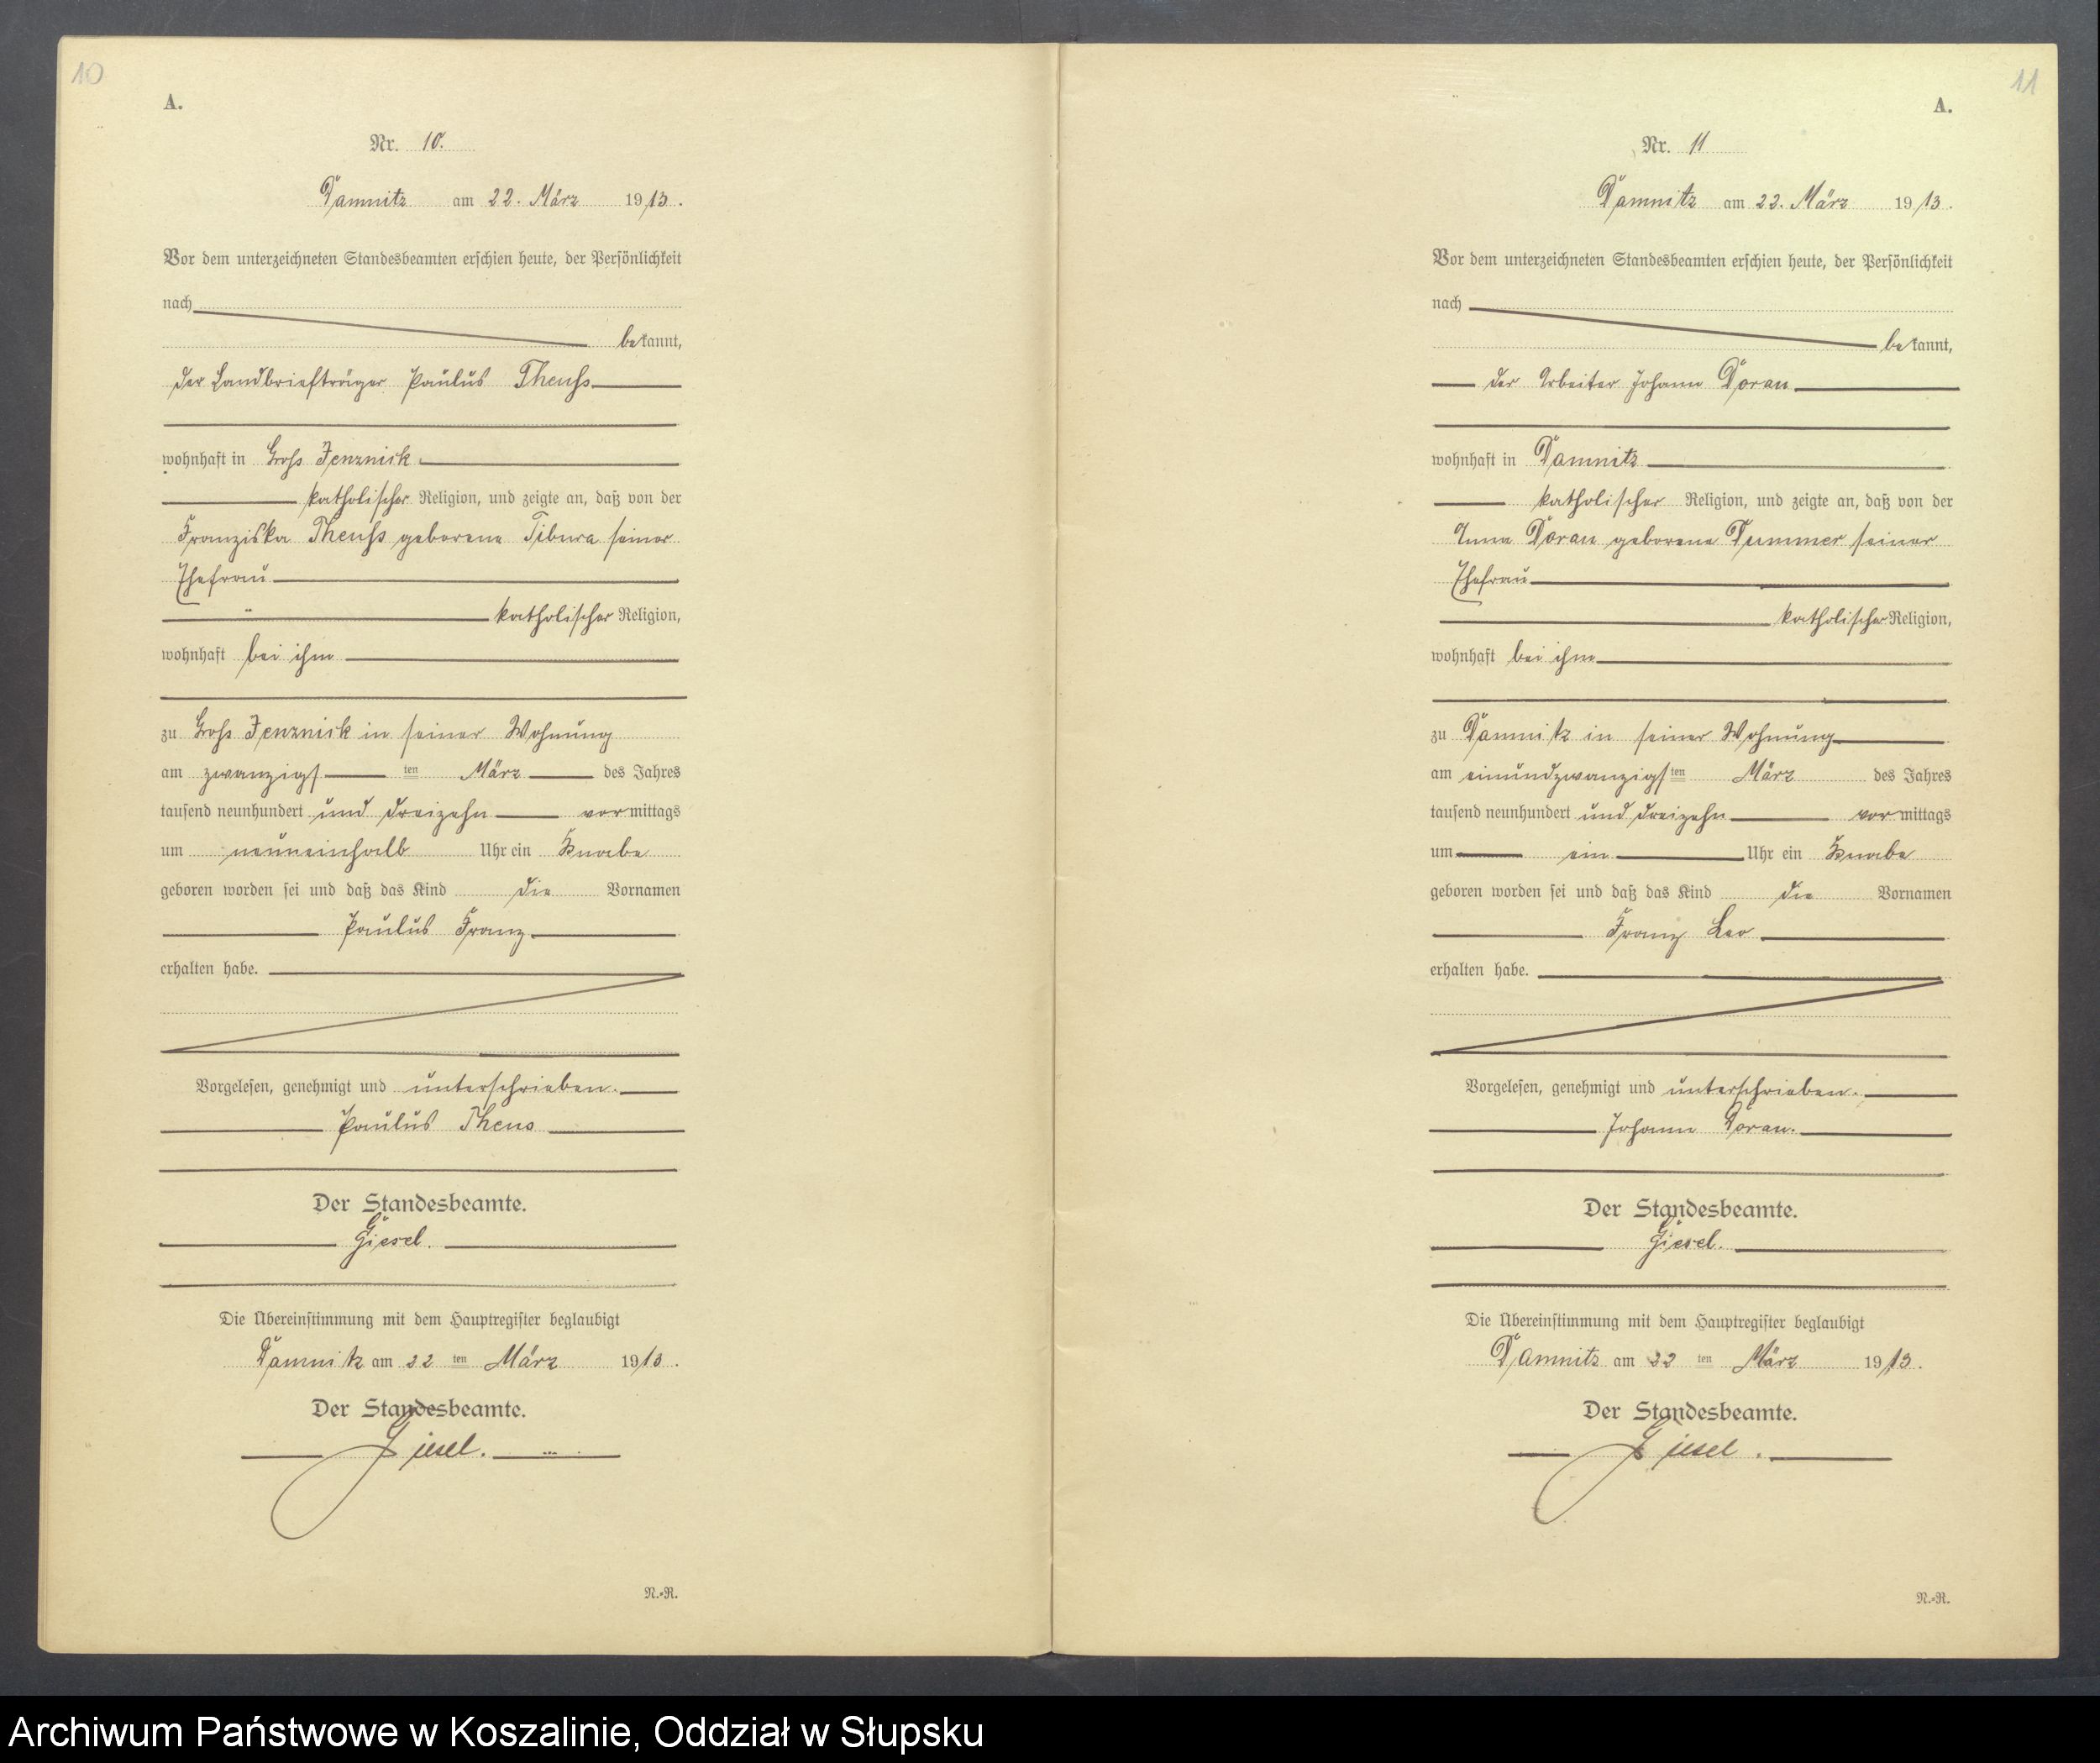 10
A.
Nr. 10.
Damnitz am 22. März 1913.
Vor dem unterzeichneten Standesbeamten erschien heute, der Persönlichkeit
nach
bekannt,
der Landbriefträger Paulus Theuss
wohnhaft in Gross Jenznick
katholischer Religion, und zeigte an, daß von der
Franziska Theuss geborene Tibura seiner
Ehefrau
katholischer Religion,
wohnhaft bei ihm
zu Gross Jenznick in seiner Wohnung
am zwanzigsten März des Jahres
tausend neunhundert und dreizehn vormittags
um neuneinhalb Uhr ein Knabe
geboren worden sei und daß das Kind die Vornamen
Paulus Franz
erhalten habe.
Vorgelesen, genehmigt und unterschrieben.
Paulus Theus
Der Standesbeamte.
Giesel.
Die Übereinstimmung mit dem Hauptregister beglaubigt
Damnitz am 22ten März 1913.
Der Standesbeamte.
Giesel.
N.-R.
11
A.
Nr. 11
Damnitz am 22. März 1913.
Vor dem unterzeichneten Standesbeamten erschien heute, der Persönlichkeit
nach
bekannt,
der Arbeiter Johann Doran
wohnhaft in Damnitz
katholischer Religion, und zeigte an, daß von der
Anna Doran geborene Dummer seiner
Ehefrau
katholischer Religion,
wohnhaft bei ihm
zu Damnitz in seiner Wohnung
am einundzwanzigsten März des Jahres
tausend neunhundert und dreizehn vormittags
um ein Uhr ein Knabe
geboren worden sei und daß das Kind die Vornamen
Franz Leo
erhalten habe.
Vorgelesen, genehmigt und unterschrieben.
Johann Doran.
Der Standesbeamte.
Giesel.
Die Übereinstimmung mit dem Hauptregister beglaubigt
Damnitz am 22ten März 1913.
Der Standesbeamte.
Giesel.
N.-R.
Archiwum Państwowe w Koszalinie, Oddział w Słupsku